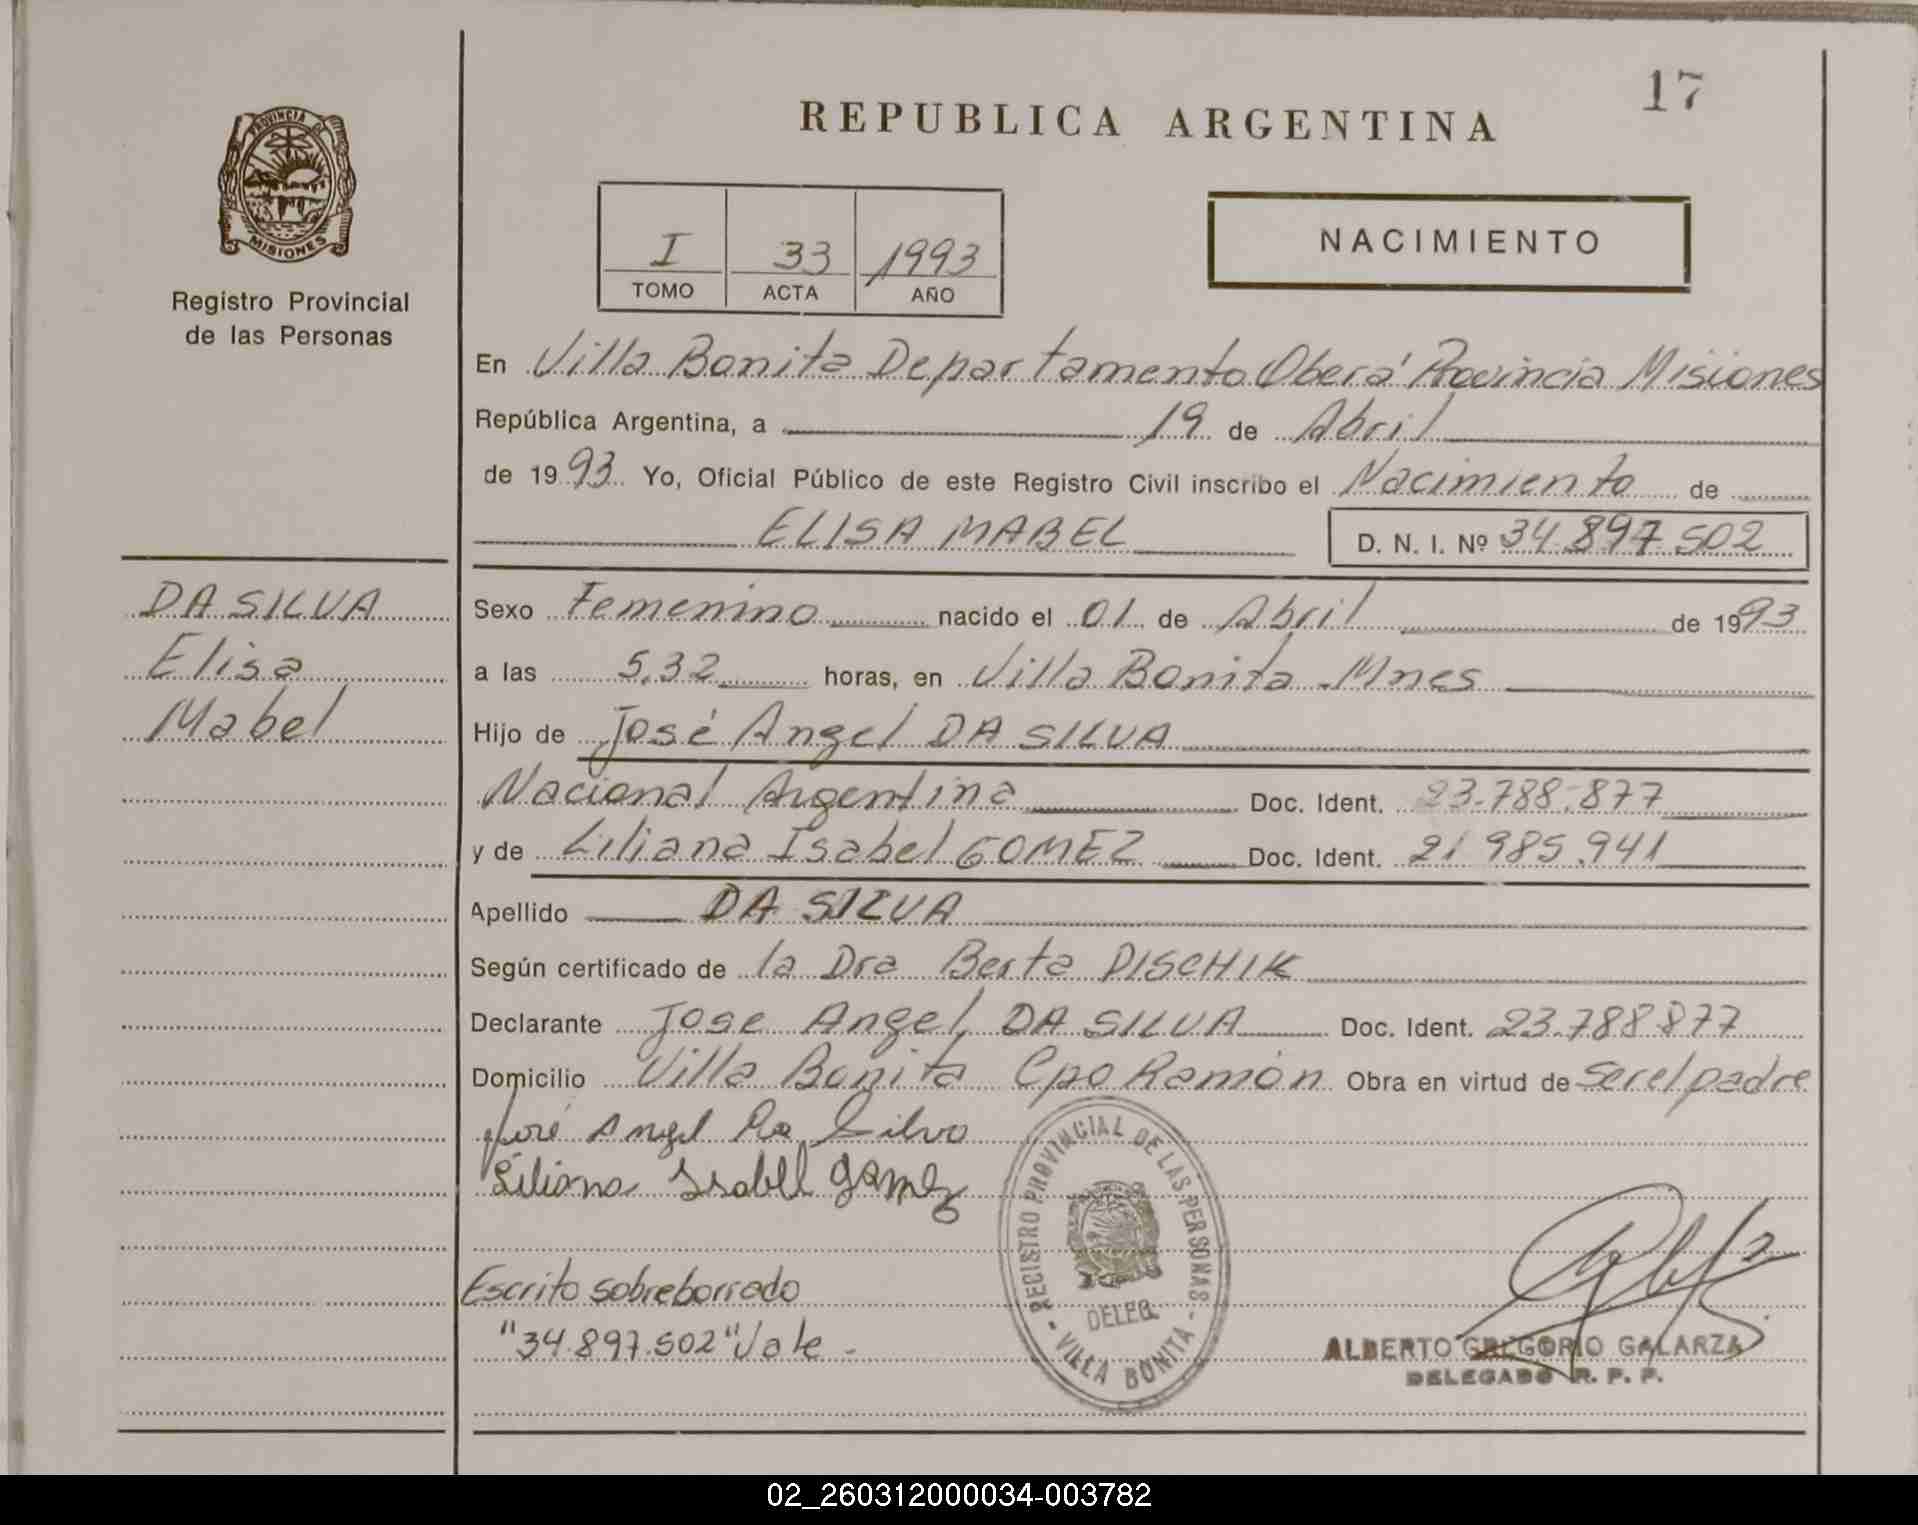 17
REPUBLICA ARGENTINA
PROVINCIA DE
MISIONES
Registro Provincial
de las Personas
I 33 1993
TOMO ACTA AÑO
NACIMIENTO
En Villa Bonita Departamento Oberá Provincia Misiones
República Argentina, a 19 de Abril
de 1993 Yo, Oficial Público de este Registro Civil inscribo el Nacimiento de
ELISA MABEL D. N. I. Nº 34.897.502
DA SILVA
Elisa
Mabel
Sexo Femenino nacido el 01 de Abril de 1993
a las 5,32 horas, en Villa Bonita Mnes
Hijo de José Angel DA SILVA
Nacional Argentina Doc. Ident. 23.788.877
y de Liliana Isabel GOMEZ Doc. Ident. 21 985.941
Apellido DA SILVA
Según certificado de la Dra Berta DISCHIK
Declarante Jose Angel DA SILVA Doc. Ident. 23.788.877
Domicilio Villa Bonita Cpo Ramón Obra en virtud de ser el padre
José Angel Da Silva
Liliana Isabell Gomez
REGISTRO PROVINCIAL DE LAS PERSONAS
DELEG.
- VILLA BONITA -
Escrito sobreborrado
"34.897.502" Vale -
ALBERTO GREGORIO GALARZA
DELEGADO R. P. P.
02_260312000034-003782